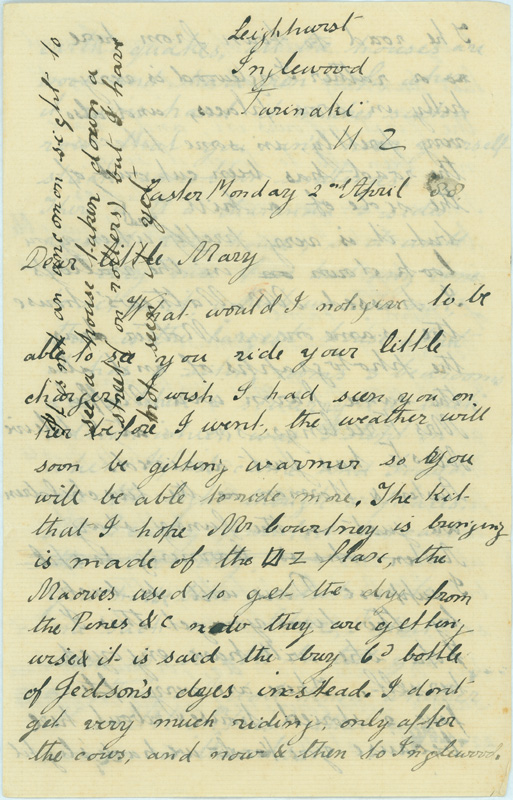 Leighhurst
Inglewood
Tarinaki
N Z
Easter Monday 2nd April 88
Dear little Mary
What would I not give to be
able to see you ride your little
charger, I wish I had seen you on
her before I went, the weather will
soon be getting warmer so you
will be able to ride more. The Kit
that I hope Mr Courtney is bringing
is made of the N Z flax, the
Maories used to get the dy from
the Pines &c now they are getting
wise & it is said the buy 6d bottle
of Jedson's dyes instead. I dont
get very much riding, only after
the cows, and now & then to Inglewood.
It is not an uncomon sight to
see a house taken down a
street (on rollers) but I have
not seen it yet